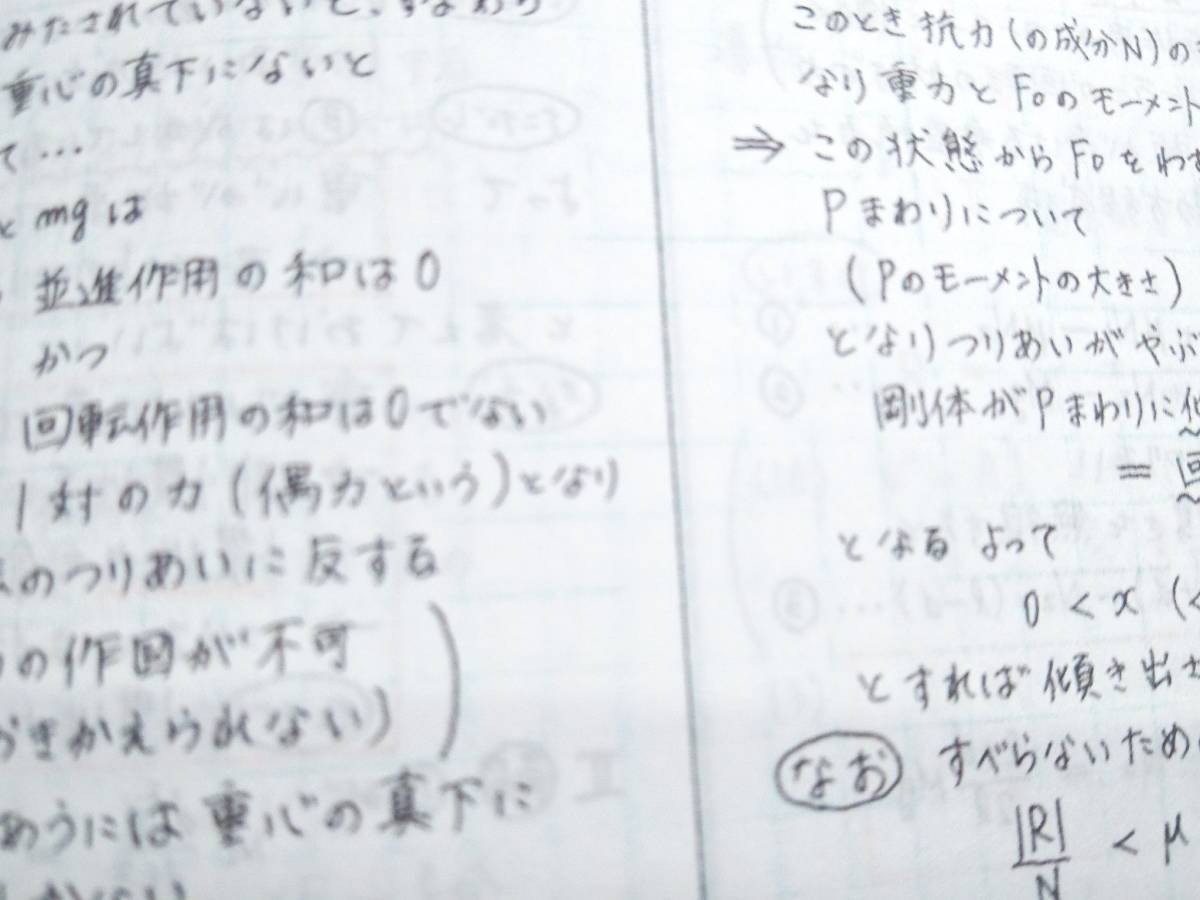 みたされていないと、すなわち
重心の真下にないと
て…
と mg は
並進作用の和は0
かつ
回転作用の和は0でない
1対の力(偶力という)となり
のつりあいに反する
の作図が不可
おきかえられない)
あうには重心の真下に
このとき抗力(の成分N)の
なり重力とF₀のモーメント
⇒ この状態からF₀をわず
Pまわりについて
(Pのモーメントの大きさ)
となりつりあいがやぶ
剛体がPまわりに
= 回
となる よって
0 < x (<
とすれば傾き出さ
なお すべらないため
|R|/N < μ